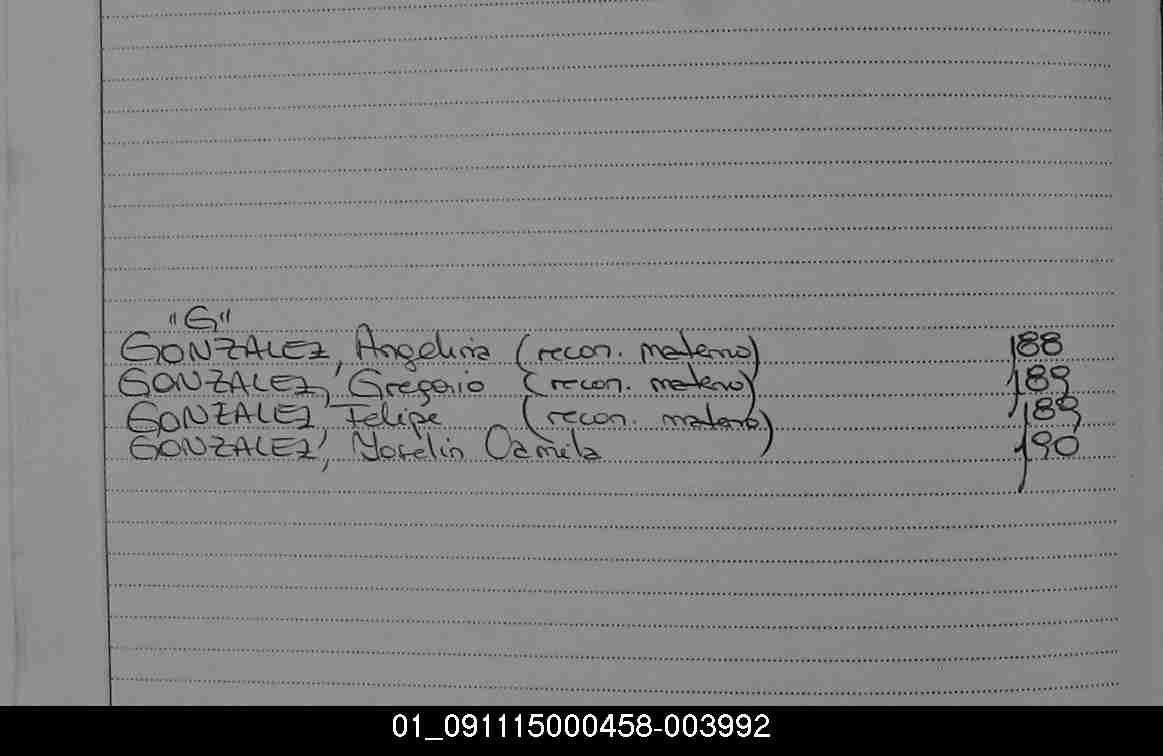 "G"
GONZALEZ, Angelina (recon. materno) 188
GONZALEZ, Gregorio (recon. materno) 189
GONZALEZ, Felipe (recon. materno) 189
GONZALEZ, Yoselin Camila 190
01_091115000458-003992